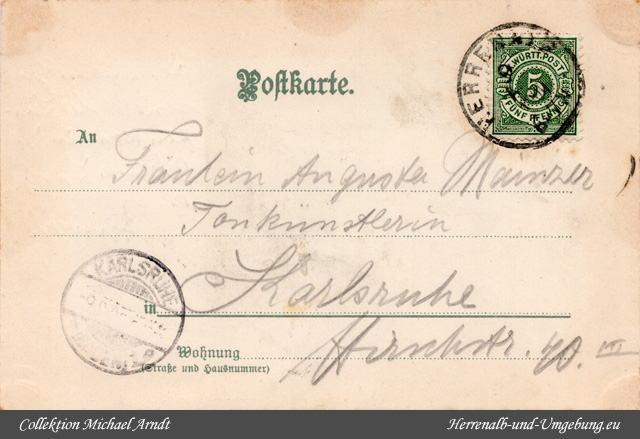 Postkarte.
K. WÜRTT. POST
5
FÜNF PFENNIG
HERRENALB
An
Fräulein Augusta Mainzer
Tonkünstlerin
KARLSRUHE
in Karlsruhe
Wohnung Hirschstr. 40. III
(Straße und Hausnummer)
Collektion Michael Arndt
Herrenalb-und-Umgebung.eu